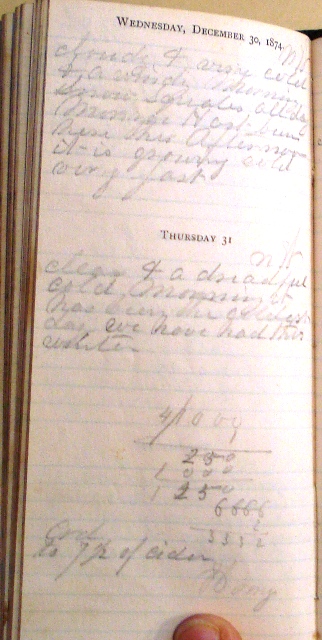 WEDNESDAY, DECEMBER 30, 1874.
cloudy & very cold
& a windy morning
Snow squalls all day
here this Afternoon
it is growing cold
very fast
THURSDAY 31
clear & a dreadful
cold morning it
has been the coldest
day we have had this
winter
4/1000
250
1000
1250
6666
2
3332
Cr
to 7 1/2 of cider